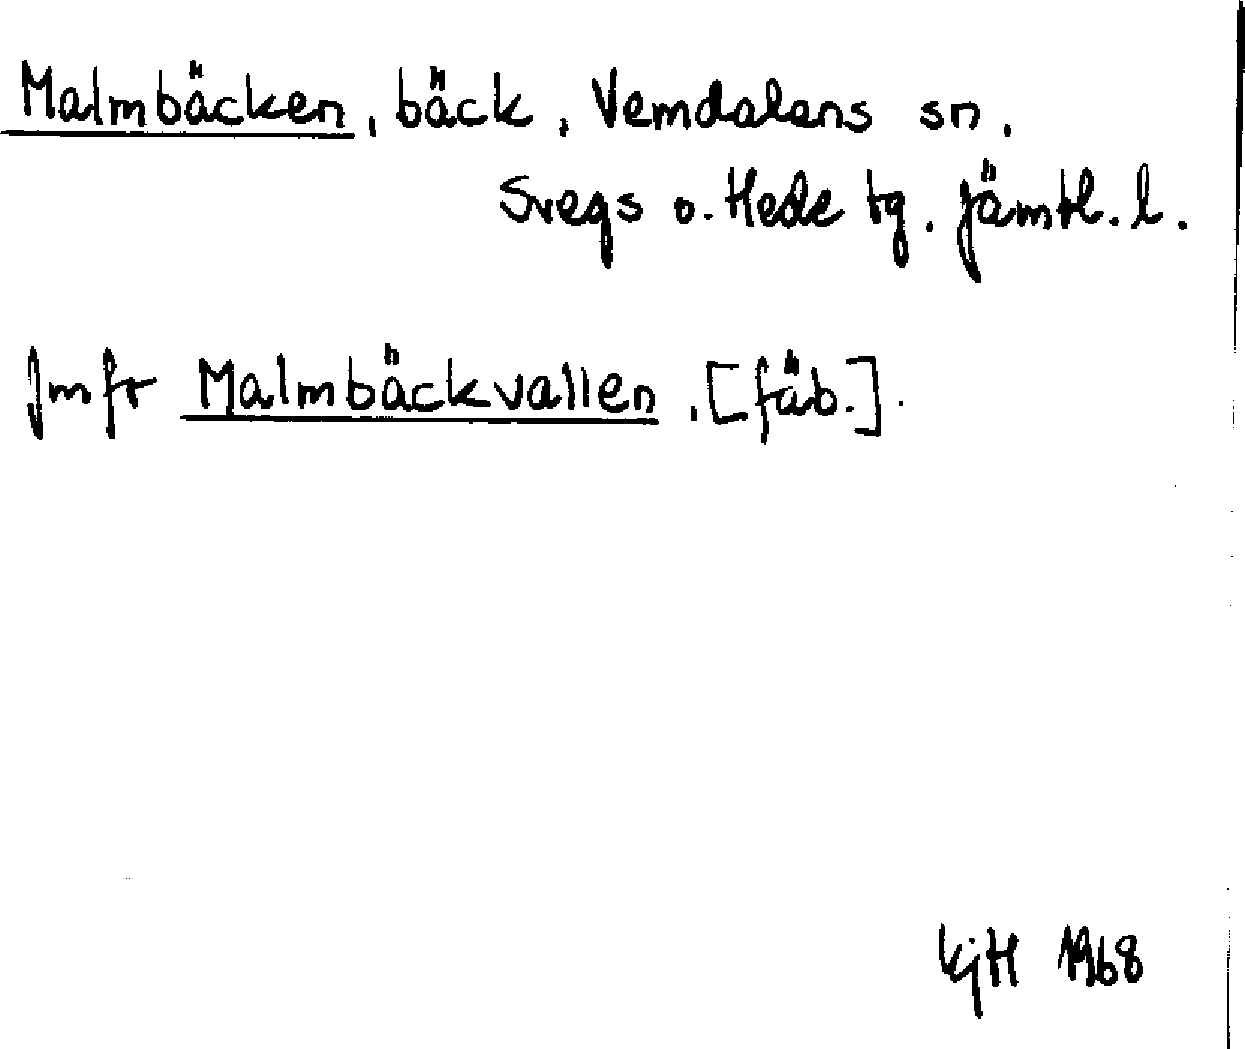 Malmbäcken, bäck, Vemdalens sn.
Svegs o. Hede tg. Jämtl. l.
Jmfr Malmbäckvallen, [fäb.].
KjH 1968